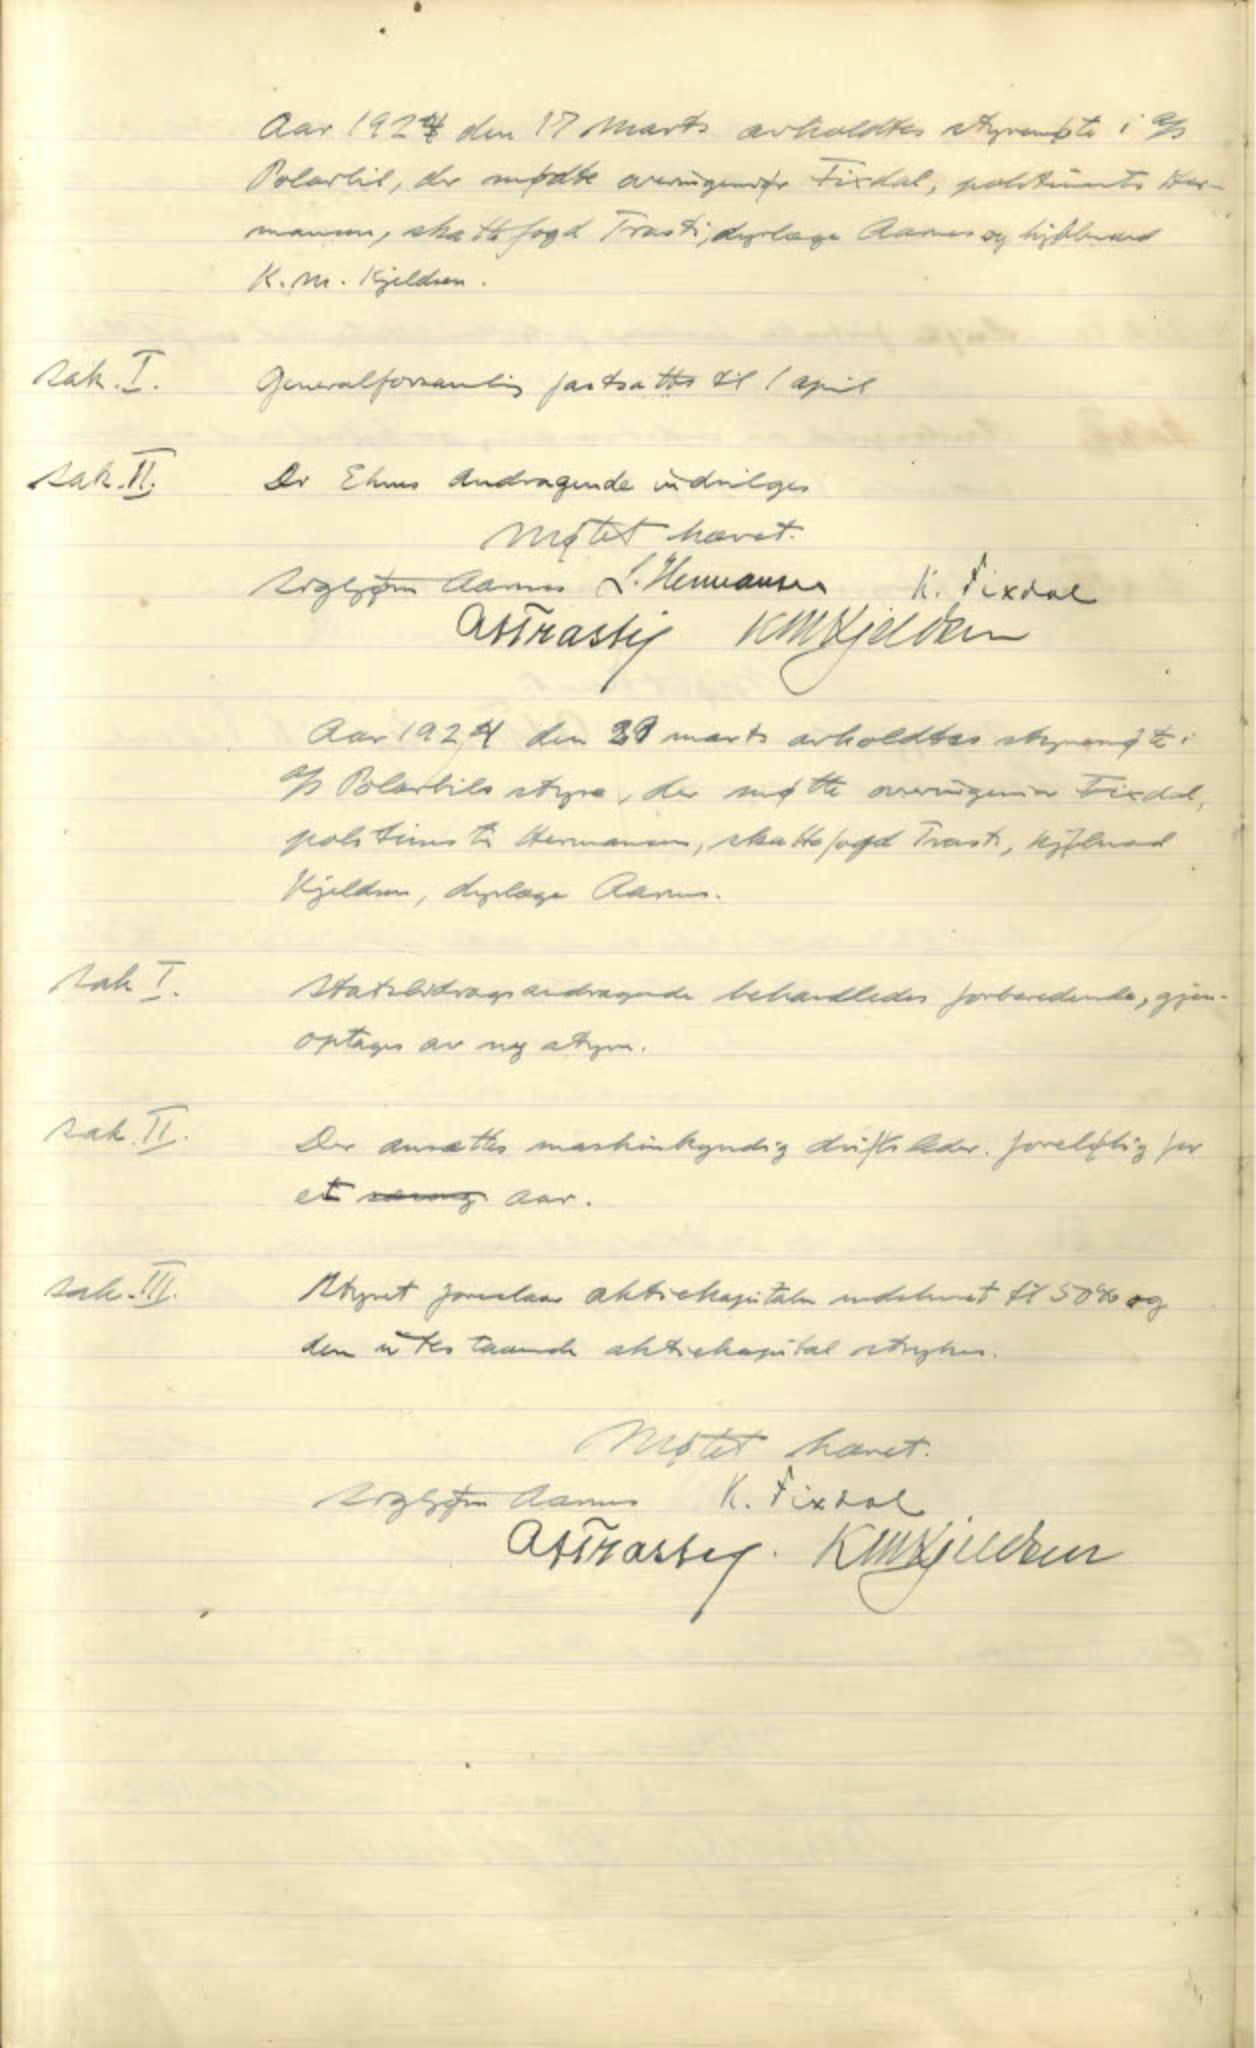 Aar 1924 den 17 Marts avholdtes styremøte i A/S
Polarbil, der mødte overingeniør Fixdal, politimester Her-
mansen, skattefogd Trasti, dyrlæge Aarnes og kjøbmand
K. M. Kjeldsen.
Sak. I. Generalforsamling fastsattes til 1 april
Sak. II. Dr Ehns Andragende indvilges
Møtet hævet.
Sigbjørn Aarnes L. Hermansen K. Fixdal
A Trasti KMKjeldsen
Aar 1924 den 29 marts avholdtes styremøte i
A/S Polarbils styre, der møtte overingeniør Fixdal,
politimester Hermansen, skattefogd Trasti, kjøbmand
Kjeldsen, dyrlæge Aarnes.
Sak I. Statsbidragsandragende behandledes forberedende, gjen-
optages av ny styre.
Sak. II. Der ansættes maskinkyndig driftsleder. foreløbig for
et aar.
Sak. III. Styret foreslaar aktiekapitalen nedskrevet til 50% og
den utestaaende aktiekapital strykes.
Møtet hævet.
Sigbjørn Aarnes K. Fixdal
A Trasti. KMKjeldsen